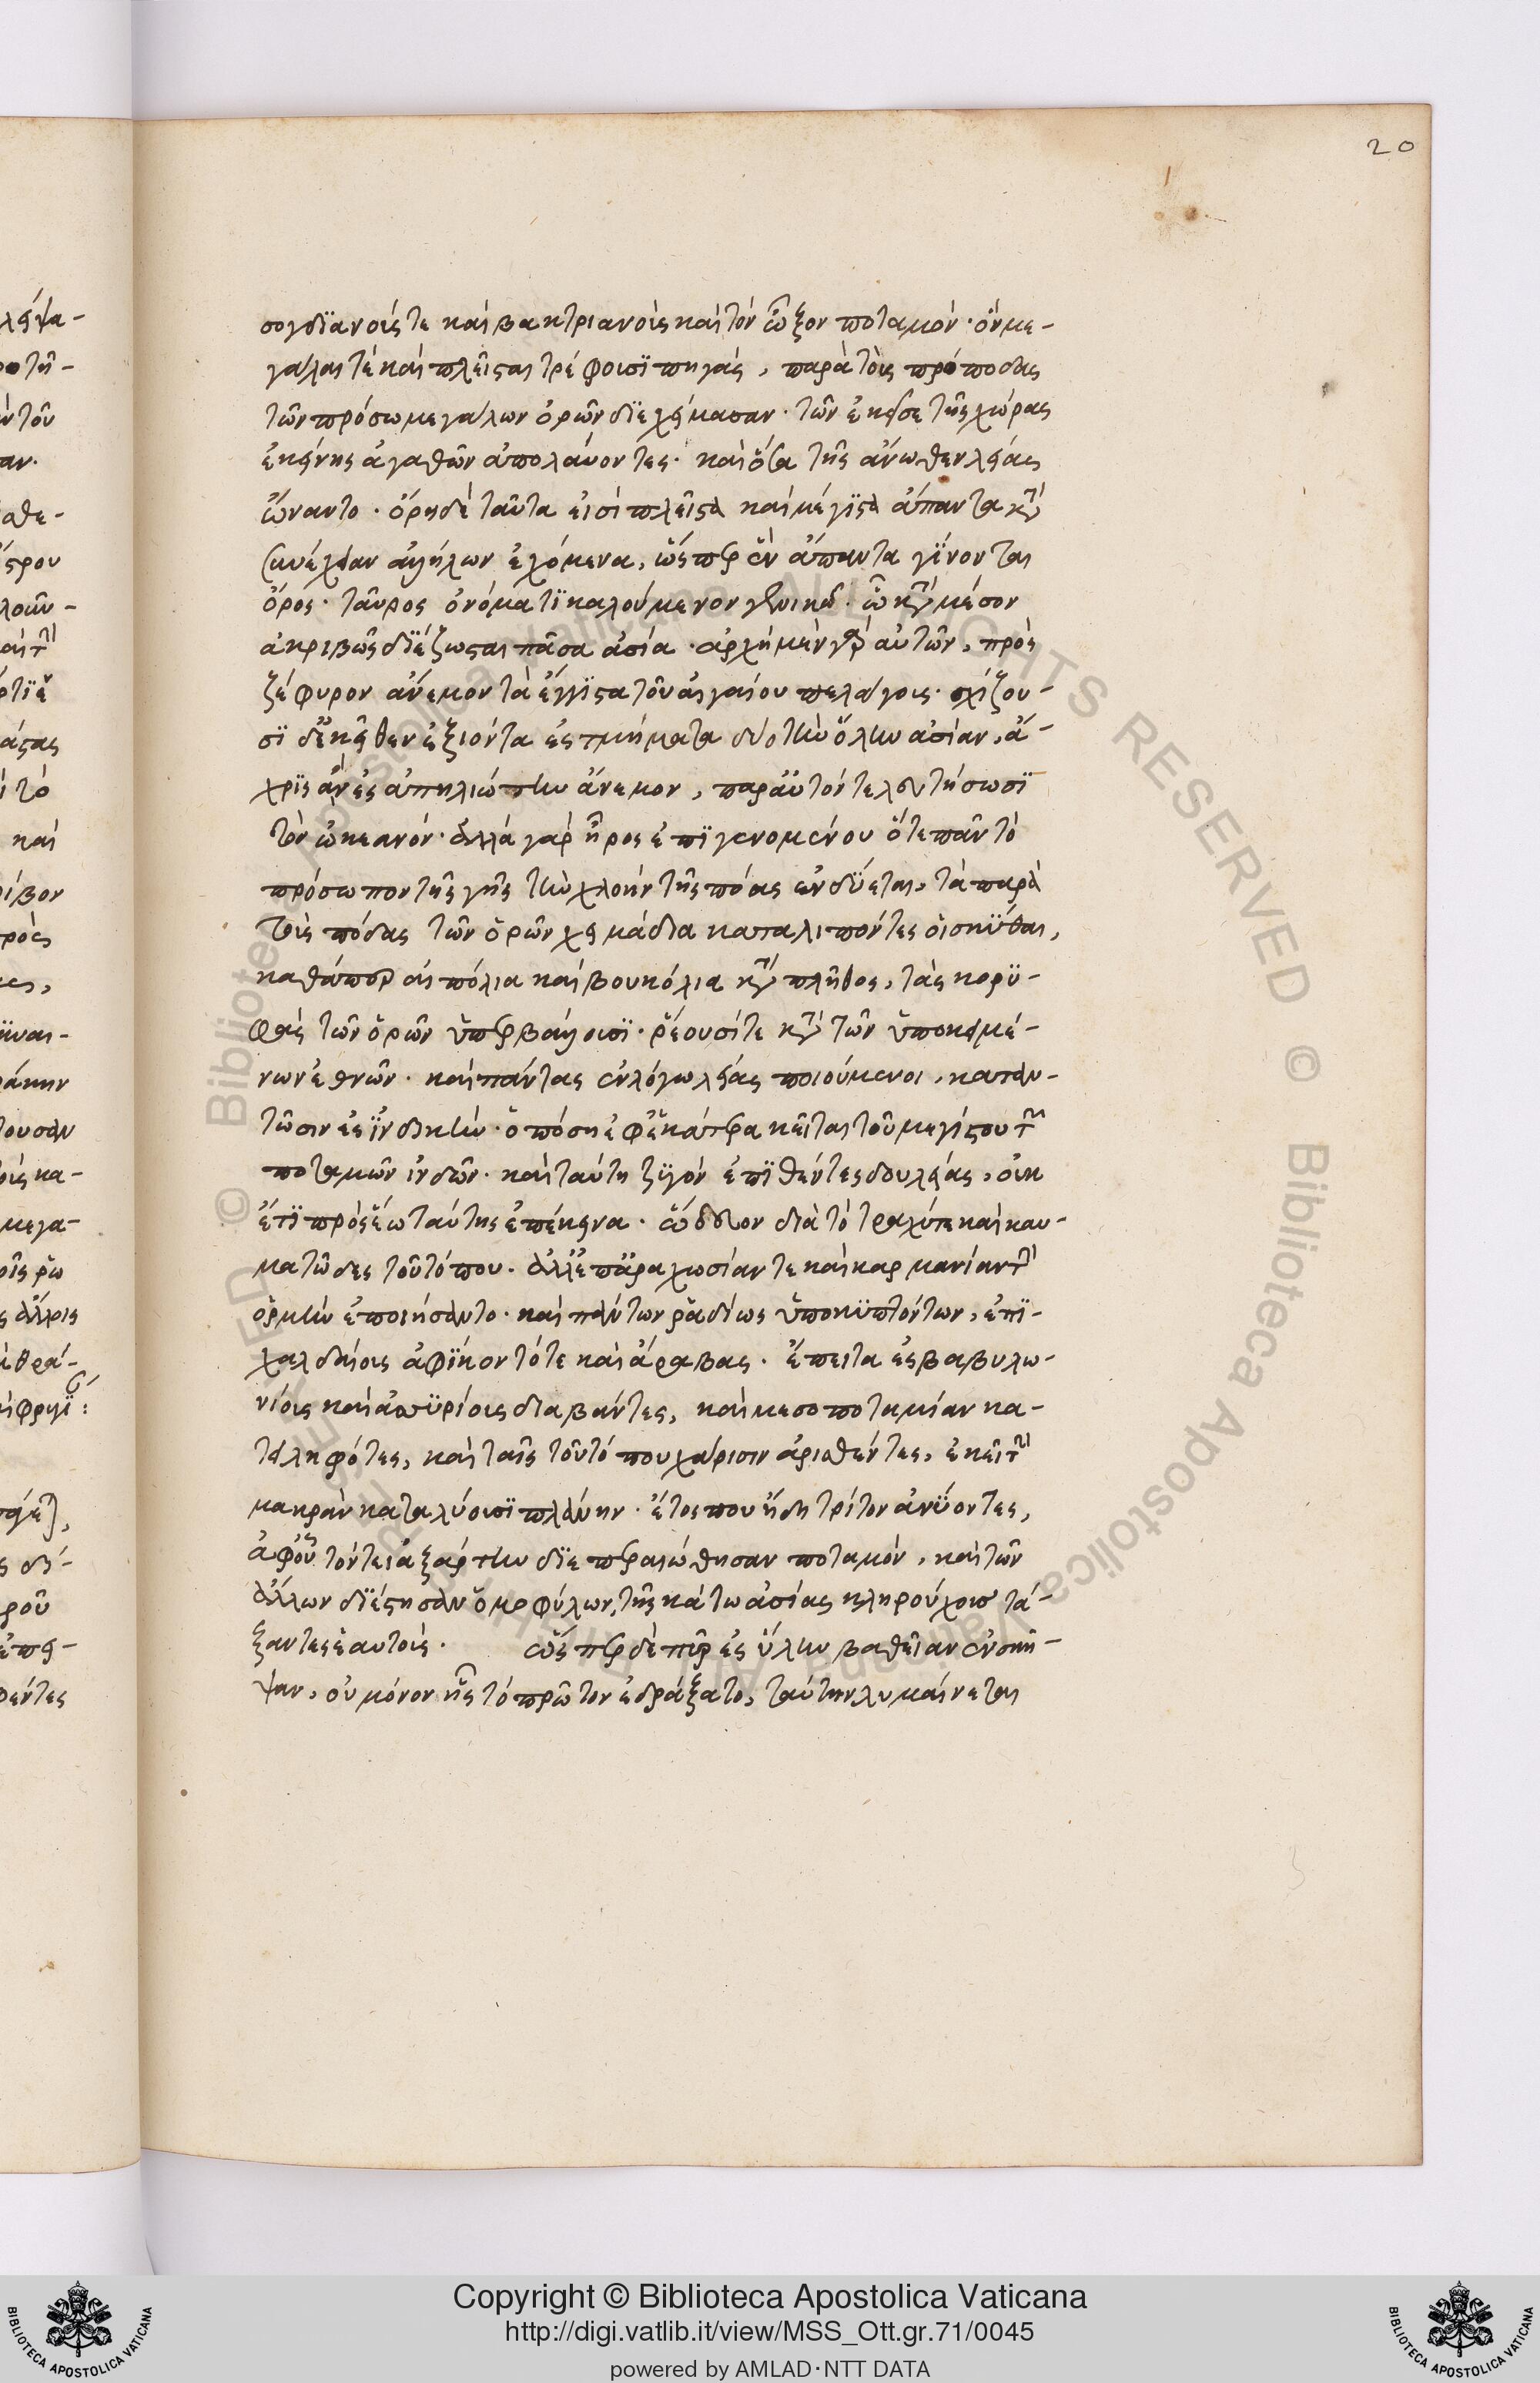 20
σογδϊανοίς τε καὶ βακτριανοῖς καὶ τὸν ὦξον ποταμόν· ὃν με-
γάλαι τὲ καὶ πλεῖσται τρέφουσϊ πηγαὶ, παρὰ τοὺς πρόποδας
τῶν πρόσω μεγάλων ὀρῶν δϊεχείμασαν· τῶν ἐκεῖσε τῆς χώρας
ἐκείνης ἀγαθῶν ἀπολαύοντες· καὶ ὅσα τῆς ἄνωθεν λείας
ὤναντο· ὄρη δὲ ταῦτα εἰσὶ πλεῖστα καὶ μέγϊστα ἅπαντα καὶ
συνέχειαν ἀλλήλων ἐχόμενα, ὥσπερ ἓν ἅπαντα γϊνονται
ὄρος· ταῦρος ὀνόματϊ καλούμενον γενικῶ· ὧ κατὰ μέσον
ἀκριβῶς δϊέζωσται πᾶσα ἀσία· ἀρχὴ μὲν γὰρ αὐτῶν, πρὸς
ζέφυρον ἄνεμον τὰ ἔγγϊστα τοῦ αἰγαίου πελάγους· σχίζου-
σϊ δὲ κεῖθεν ἐξιόντα ἐς τμήματα δύο τὴν ὅλην ἀσίαν, ἄ-
χρϊς ἂν ἐς ἀπηλιώτην ἄνεμον, παρ' αὐτὸν τελευτήσωσϊ
τὸν ὠκεανόν· ἀλλὰ γὰρ ἦρος ἐπϊγενομένου ὅτε πᾶν τὸ
πρόσωπον τῆς γῆς τὴν χλοὴν τῆς πόας ἐνδϋεται, τὰ παρὰ
τοὺς πόδας τῶν ὀρῶν χειμάδια καταλιπόντες οἱ σκϋθαι,
καθάπερ αἰπόλια καὶ βουκόλια κατὰ πλῆθος, τὰς κορϋ-
φὰς τῶν ὀρῶν ὑπερβάλλουσϊ· ῥέουσί τε κατὰ τῶν ὑποκειμέ-
νων ἐθνῶν· καὶ πάντας ἐν λόγω λείας ποιούμενοι, καταν-
τῶσιν ἐς ἰνδικήν· ὁπόση ἐφ' ἑκάτερα κεῖται τοῦ μεγίστου τῶν
ποταμῶν ἰνδῶν· καὶ ταύτη ζϋγὸν ἐπϊθέντες δουλείας, οὐκ
ἔτϊ πρὸς ἕω ταύτης ἐπέκεινα· ὥδευον διὰ τὸ τραχύ τε καὶ καυ-
ματῶδες τοῦ τόπου· ἀλλ' ἐπ' ἀραχωσίαν τε καὶ καρμανίαν τὴν
ὁρμὴν ἐποιήσαντο· καὶ πάντων ῥαδίως ὑποκϋπτόντων, ἐπϊ
χαλδαίους ἀφϊκοντό τε καὶ ἄραβας· ἔπειτα ἐς βαβυλω-
νίους καὶ ἀσσϋρίους διαβάντες, καὶ μεσοποταμίαν κα-
τειληφότες, καὶ ταῖς τοῦ τόπου χάρισιν ἀρισθέντες, ἐκεῖ τὴν
μακρὰν καταλύουσϊ πλάνην· ἔτος που ἤδη τρίτον ἀνϋοντες,
ἀφ' οὗ τόν τε ἰαξάρτην δϊεπεραιώθησαν ποταμὸν, καὶ τῶν
ἄλλων δϊέστησαν ὁμοφύλων, τῆς κάτω ἀσίας κληρούχους τά-
ξαντες ἑαυτούς· ὥσπερ δὲ πῦρ ἐς ὕλην βαθεῖαν ἐνσκῆ-
ψαν, οὐ μόνον ἧς τὸ πρῶτον ἐδράξατο, ταύτην λυμαίνεται
Copyright © Biblioteca Apostolica Vaticana
http://digi.vatlib.it/view/MSS_Ott.gr.71/0045
powered by AMLAD·NTT DATA